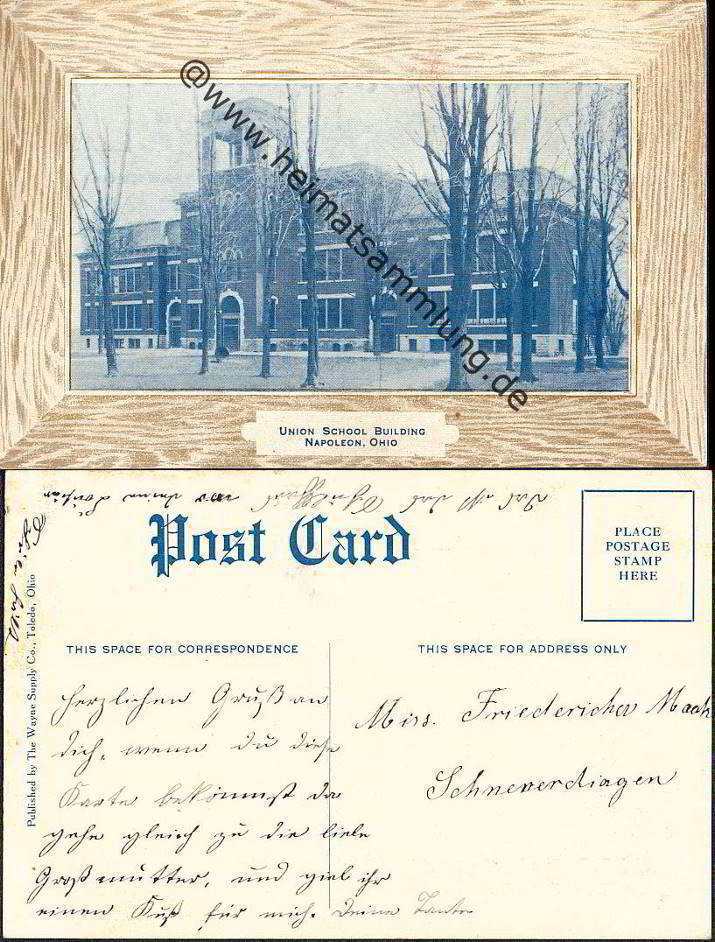 @www.heimatsammlung.de
UNION SCHOOL BUILDING
NAPOLEON, OHIO
Das ist das Schulhaus wo meine
Post Card
PLACE
POSTAGE
STAMP
HERE
Published by The Wayne Supply Co., Toledo, Ohio
THIS SPACE FOR CORRESPONDENCE
THIS SPACE FOR ADDRESS ONLY
Herzlichen Gruß an
dich, wenn du diese
Karte bekommst da
gehe gleich zu die liebe
Großmutter, und giel ihr
einen Kuß für mich. Deine Tante
Miss. Friedericha Maak
Schneverdingen